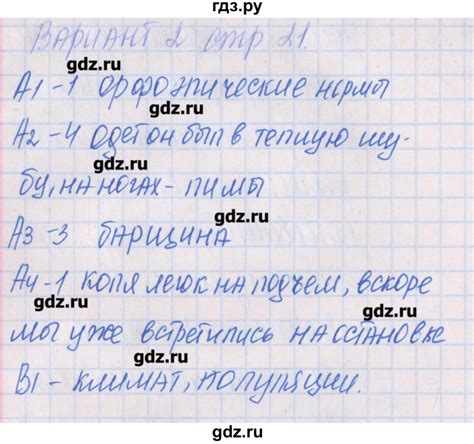 гдз.ру
Вариант 2 стр 21.
gdz.ru
А1 - 1 орфоэпические нормы
gdz.ru
А2 - 4 Одет он был в теплую шу-
gdz.ru
бу, на ногах - пимы
gdz.ru
А3 - 3 барщина
gdz.ru
А4 - 1 Коля легок на подъем, вскоре
gdz.ru
мы уже встретились на остановке
gdz.ru
В1 - климат, популяции.
gdz.ru